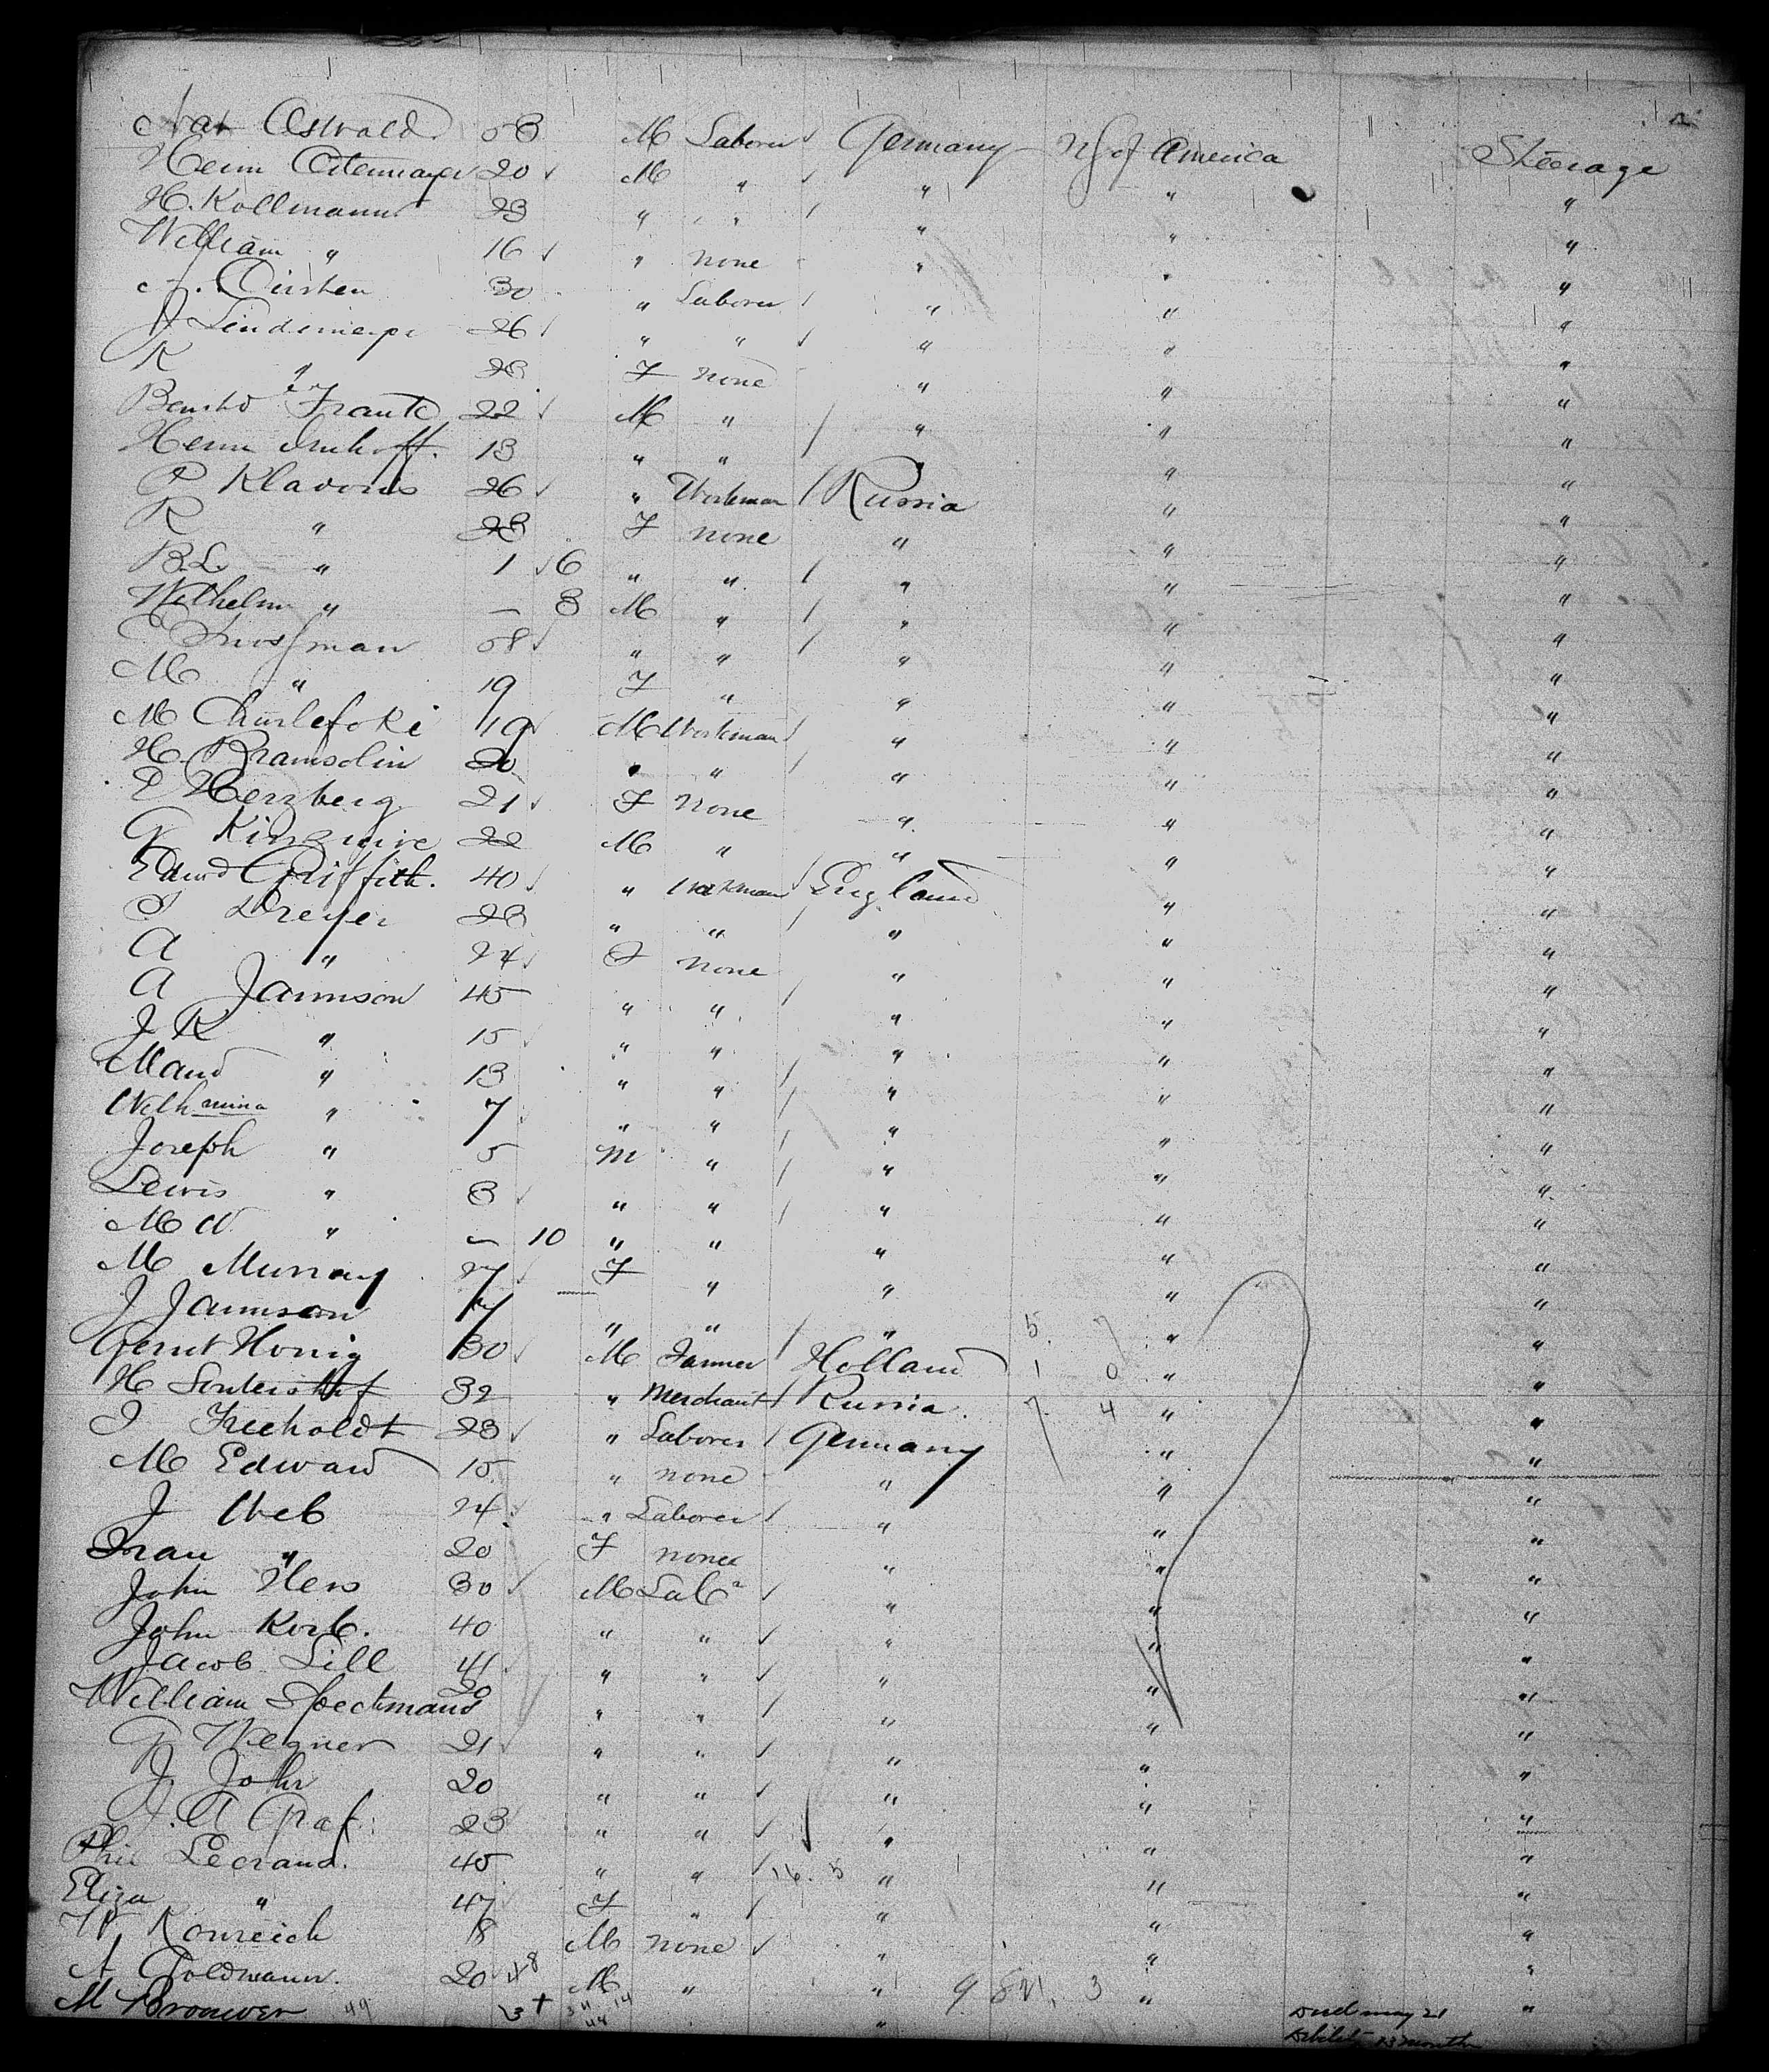 Oswald 58 M Laborer Germany U S of America Steerage
Herm Ostermayer 20 M " " " "
H. Kollmann 23 " " " " "
William " 16 " none " " "
30 " Laborer " " "
J Lindemeyer 26 " " " " "
K " 28 F none " " "
Frank 22 M " " " "
Herm Imhoff. 13 " " " " "
P Klavons 26 " Workman Russia " "
R " 28 F none " " "
B.L. " 1 6 " " " " "
Wilhelm " — 8 M " " " "
58 " " " " "
M " 19 F " " " "
M 19 M Workman " " "
H. Bramsolin 20 " " " " "
E Herzberg 21 F none " " "
G 22 M " " " "
Edwd Griffith. 40 " Workman England " "
S Dreyer 28 " " " " "
A " 24 F none " " "
A Jamison 45 " " " " "
J K " 15 " " " " "
Maud " 13 " " " " "
Wilhmina " 7 " " " " "
Joseph " 5 M " " " "
Lewis " 3 " " " " "
M W. " — 10 " " " " "
M Murray 27 F " " " "
J Jamison 17 " " " 5. 7 " "
Gerrit Honig 30 M Farmer Holland 1 0 " "
H 32 " Merchant Russia. 7 4 " "
J Freeholdt 23 " Laborer Germany " "
M Edward 15 " none " " "
J Web 24 " Laborer " " "
Frau " 20 F none " " "
John Hess 30 M Labr " " "
John Korb. 40 " " " " "
Jacob Lill 41 " " " " "
William Speckmann 20 " " " " "
G Wegner 21 " " " " "
J. John 20 " " " " "
J. A Graf. 23 " " " " "
Phil Legrand. 45 " " 16. 5 " " "
Eliza " 47 F " " " "
W. Konreich 18 M none " " "
A Goldmann. 20 48 M " " 3 " "
M Brouwer 49 " Died may 21
Debility 13 months